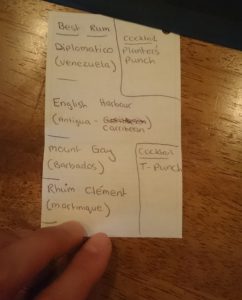 Best Rum
Diplomatico
(Venezuela)
Cocktail
Planters
Punch
English Harbour
(Antigua -
Carribean)
Mount Gay
(Barbados)
Rhum Clément
(martinique)
Cocktail
T-Punch